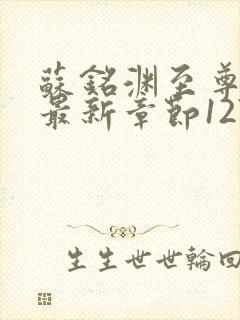 蘇銘淵至尊
最新章節12
生生世世輪回